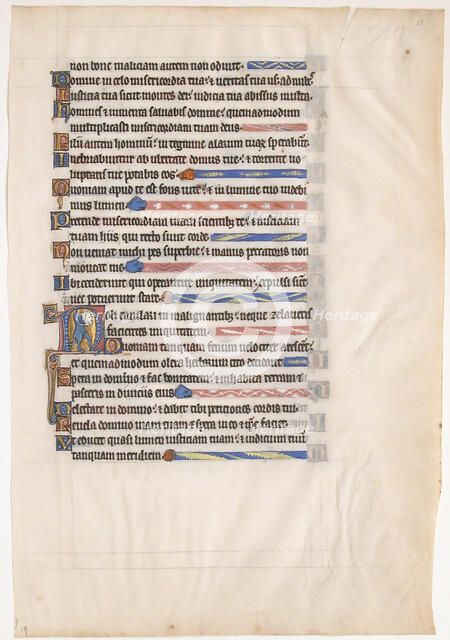 non bone maliciam autem non odiuit.
Domine in celo misericordia tua: & ueritas tua usq; ad nub'
Iusticia tua sicut montes dei: iudicia tua abissus multa.
Homines & iumenta saluabis domine: quemadmodum
multiplicasti misericordiam tuam deus.
Filii autem hominū: in tegmine alarum tuaꝝ sperabūt.
Inebriabuntur ab ubertate domus tue: & torrente uo
luptatis tue potabis eos.
Quoniam apud te est fons uite: & in lumine tuo uidebi
mus lumen.
Pretende misericordiam tuam scientibꝫ te: & iusticiam
tuam hiis qui recto sunt corde.
Non ueniat michi pes superbie: & manus peccatoris non
moueat me.
Ibi ceciderunt qui operantur iniquitatem: expulsi sūt
nec potuerunt stare.
Noli emulari in malignantibꝫ: neque zelaueris
facientes iniquitatem.
Quoniam tanquam fenum uelociter arescēt:
et quemadmodum olera herbarum cito decident.
Spera in domino & fac bonitatem: & inhabita terram &
pasceris in diuiciis eius.
Delectare in domino: & dabit tibi peticiones cordis tui.
Reuela domino uiam tuam & spera in eo & ipse faciet.
Et educet quasi lumen iusticiam tuam: & iudicium tuū
tanquam meridiem.
19
Heritage
Heritage